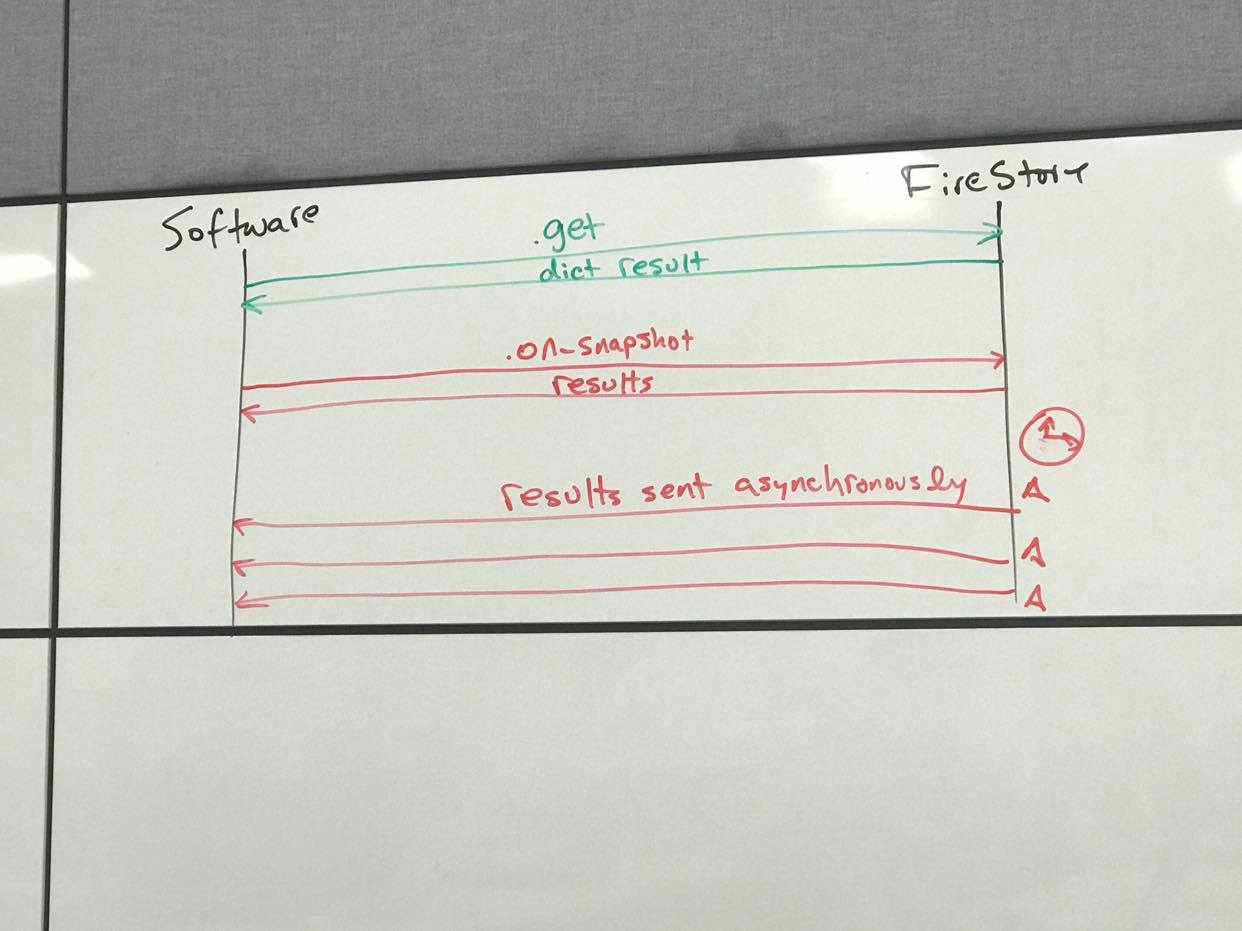 Software
FireStore
.get
dict result
.on-snapshot
results
results sent asynchronously